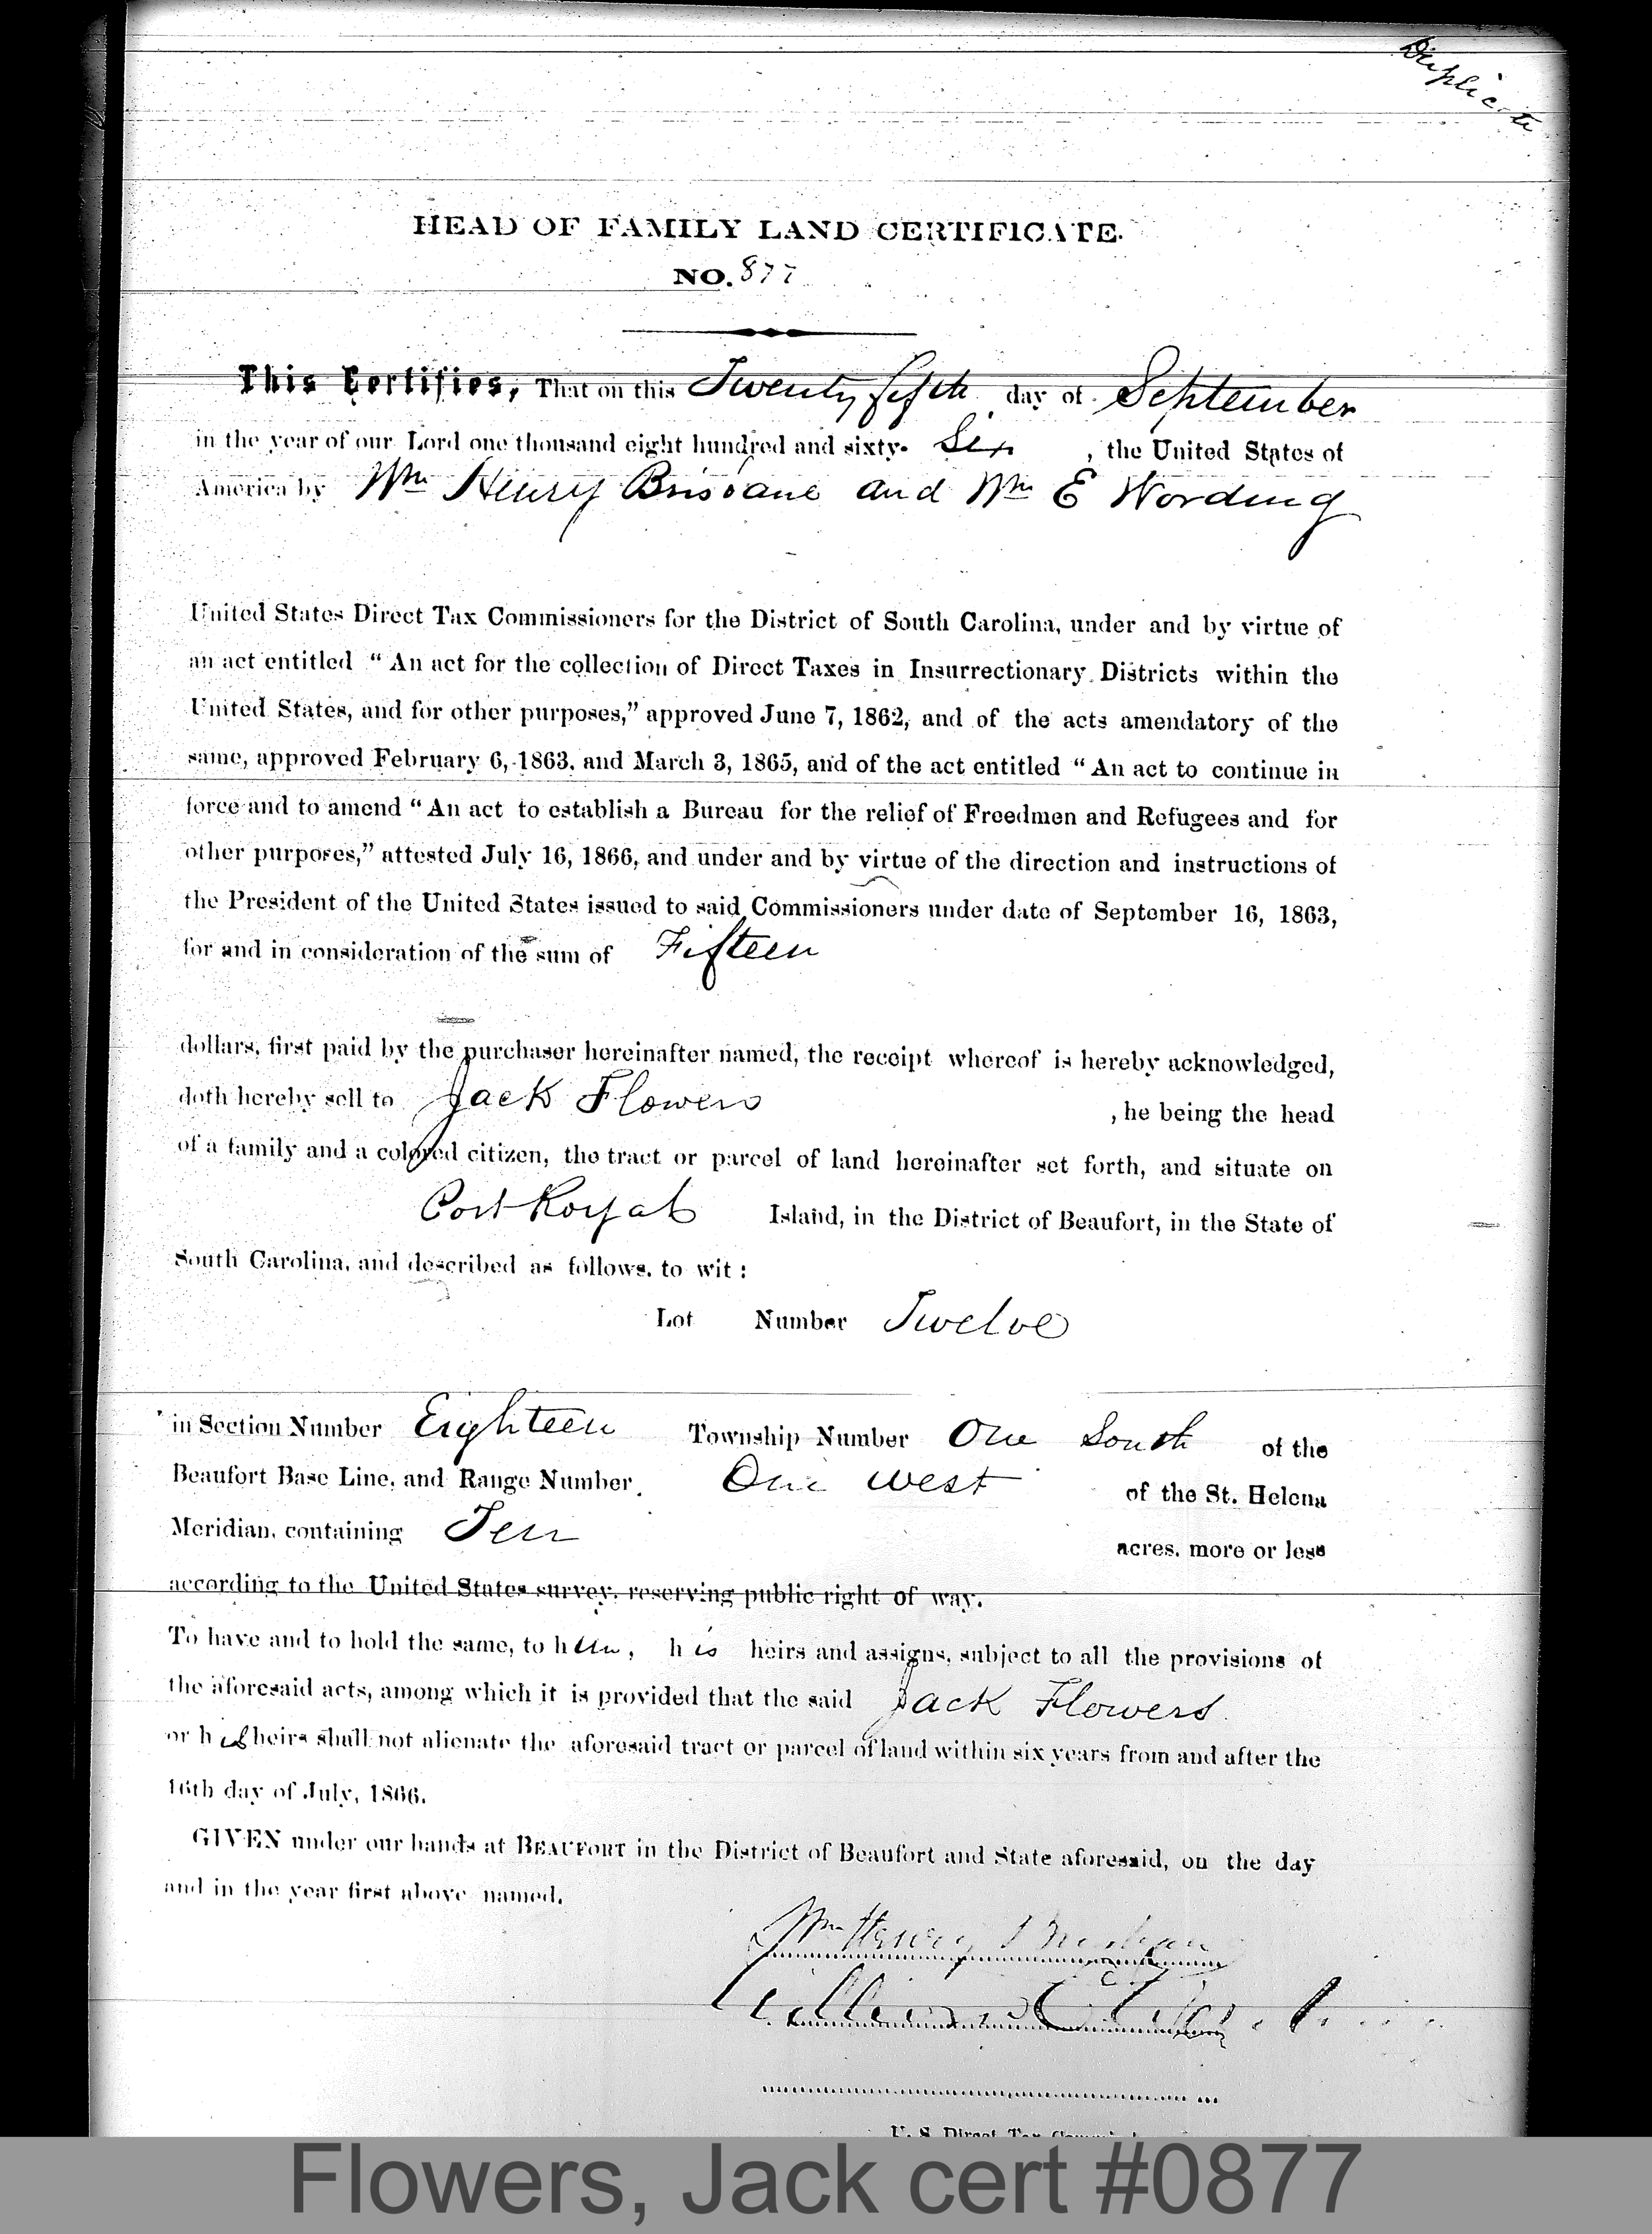 Duplicate
HEAD OF FAMILY LAND CERTIFICATE.
NO. 877
This Certifies, That on this Twenty fifth day of September
in the year of our Lord one thousand eight hundred and sixty- Six , the United States of
America by Wm Henry Brisbane and Wm E Wording
United States Direct Tax Commissioners for the District of South Carolina, under and by virtue of
an act entitled “ An act for the collection of Direct Taxes in Insurrectionary Districts within the
United States, and for other purposes,” approved June 7, 1862, and of the acts amendatory of the
same, approved February 6, 1863, and March 3, 1865, and of the act entitled “ An act to continue in
force and to amend “ An act to establish a Bureau for the relief of Freedmen and Refugees and for
other purposes,” attested July 16, 1866, and under and by virtue of the direction and instructions of
the President of the United States issued to said Commissioners under date of September 16, 1863,
for and in consideration of the sum of Fifteen
dollars, first paid by the purchaser hereinafter named, the receipt whereof is hereby acknowledged,
doth hereby sell to Jack Flowers , he being the head
of a family and a colored citizen, the tract or parcel of land hereinafter set forth, and situate on
Port Royal Island, in the District of Beaufort, in the State of
South Carolina, and described as follows, to wit :
Lot Number Twelve
in Section Number Eighteen Township Number One South of the
Beaufort Base Line, and Range Number One West of the St. Helena
Meridian, containing Ten acres, more or less
according to the United States survey, reserving public right of way.
To have and to hold the same, to him, his heirs and assigns, subject to all the provisions of
the aforesaid acts, among which it is provided that the said Jack Flowers
or his heirs shall not alienate the aforesaid tract or parcel of land within six years from and after the
16th day of July, 1866.
GIVEN under our hands at BEAUFORT in the District of Beaufort and State aforesaid, on the day
and in the year first above named.
Wm Henry Brisbane
U. S. Direct Tax
Flowers, Jack cert #0877